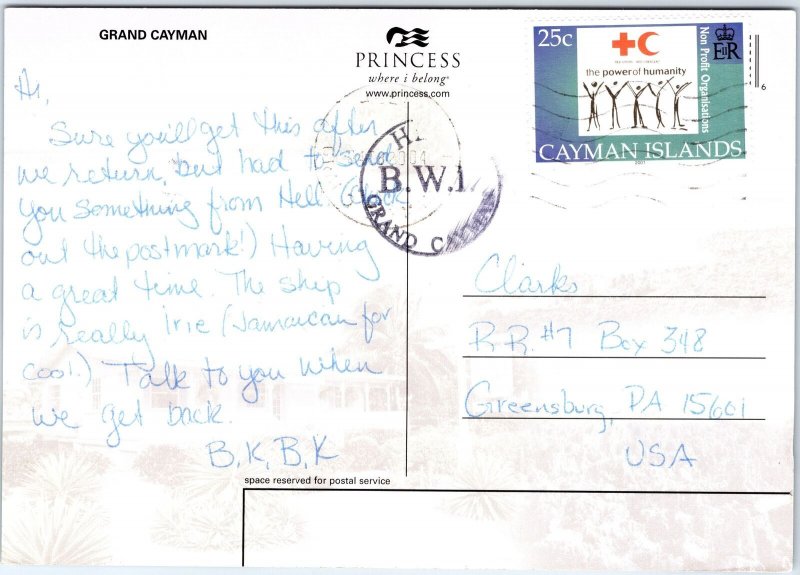 GRAND CAYMAN
PRINCESS
where i belong®
www.princess.com
25c
the power of humanity
Non Profit Organisations
EIIR
CAYMAN ISLANDS
6
B.W.I
GRAND CAYMAN
Hi,
Sure you'll get this after
we return, but had to send
you something from Hell (check
out the postmark!) Having
a great time. The ship
is really Irie (Jamaican for
cool.) Talk to you when
we get back.
B, K, B, K
Clarks
R.R. #7 Box 348
Greensburg, PA 15601
USA
space reserved for postal service